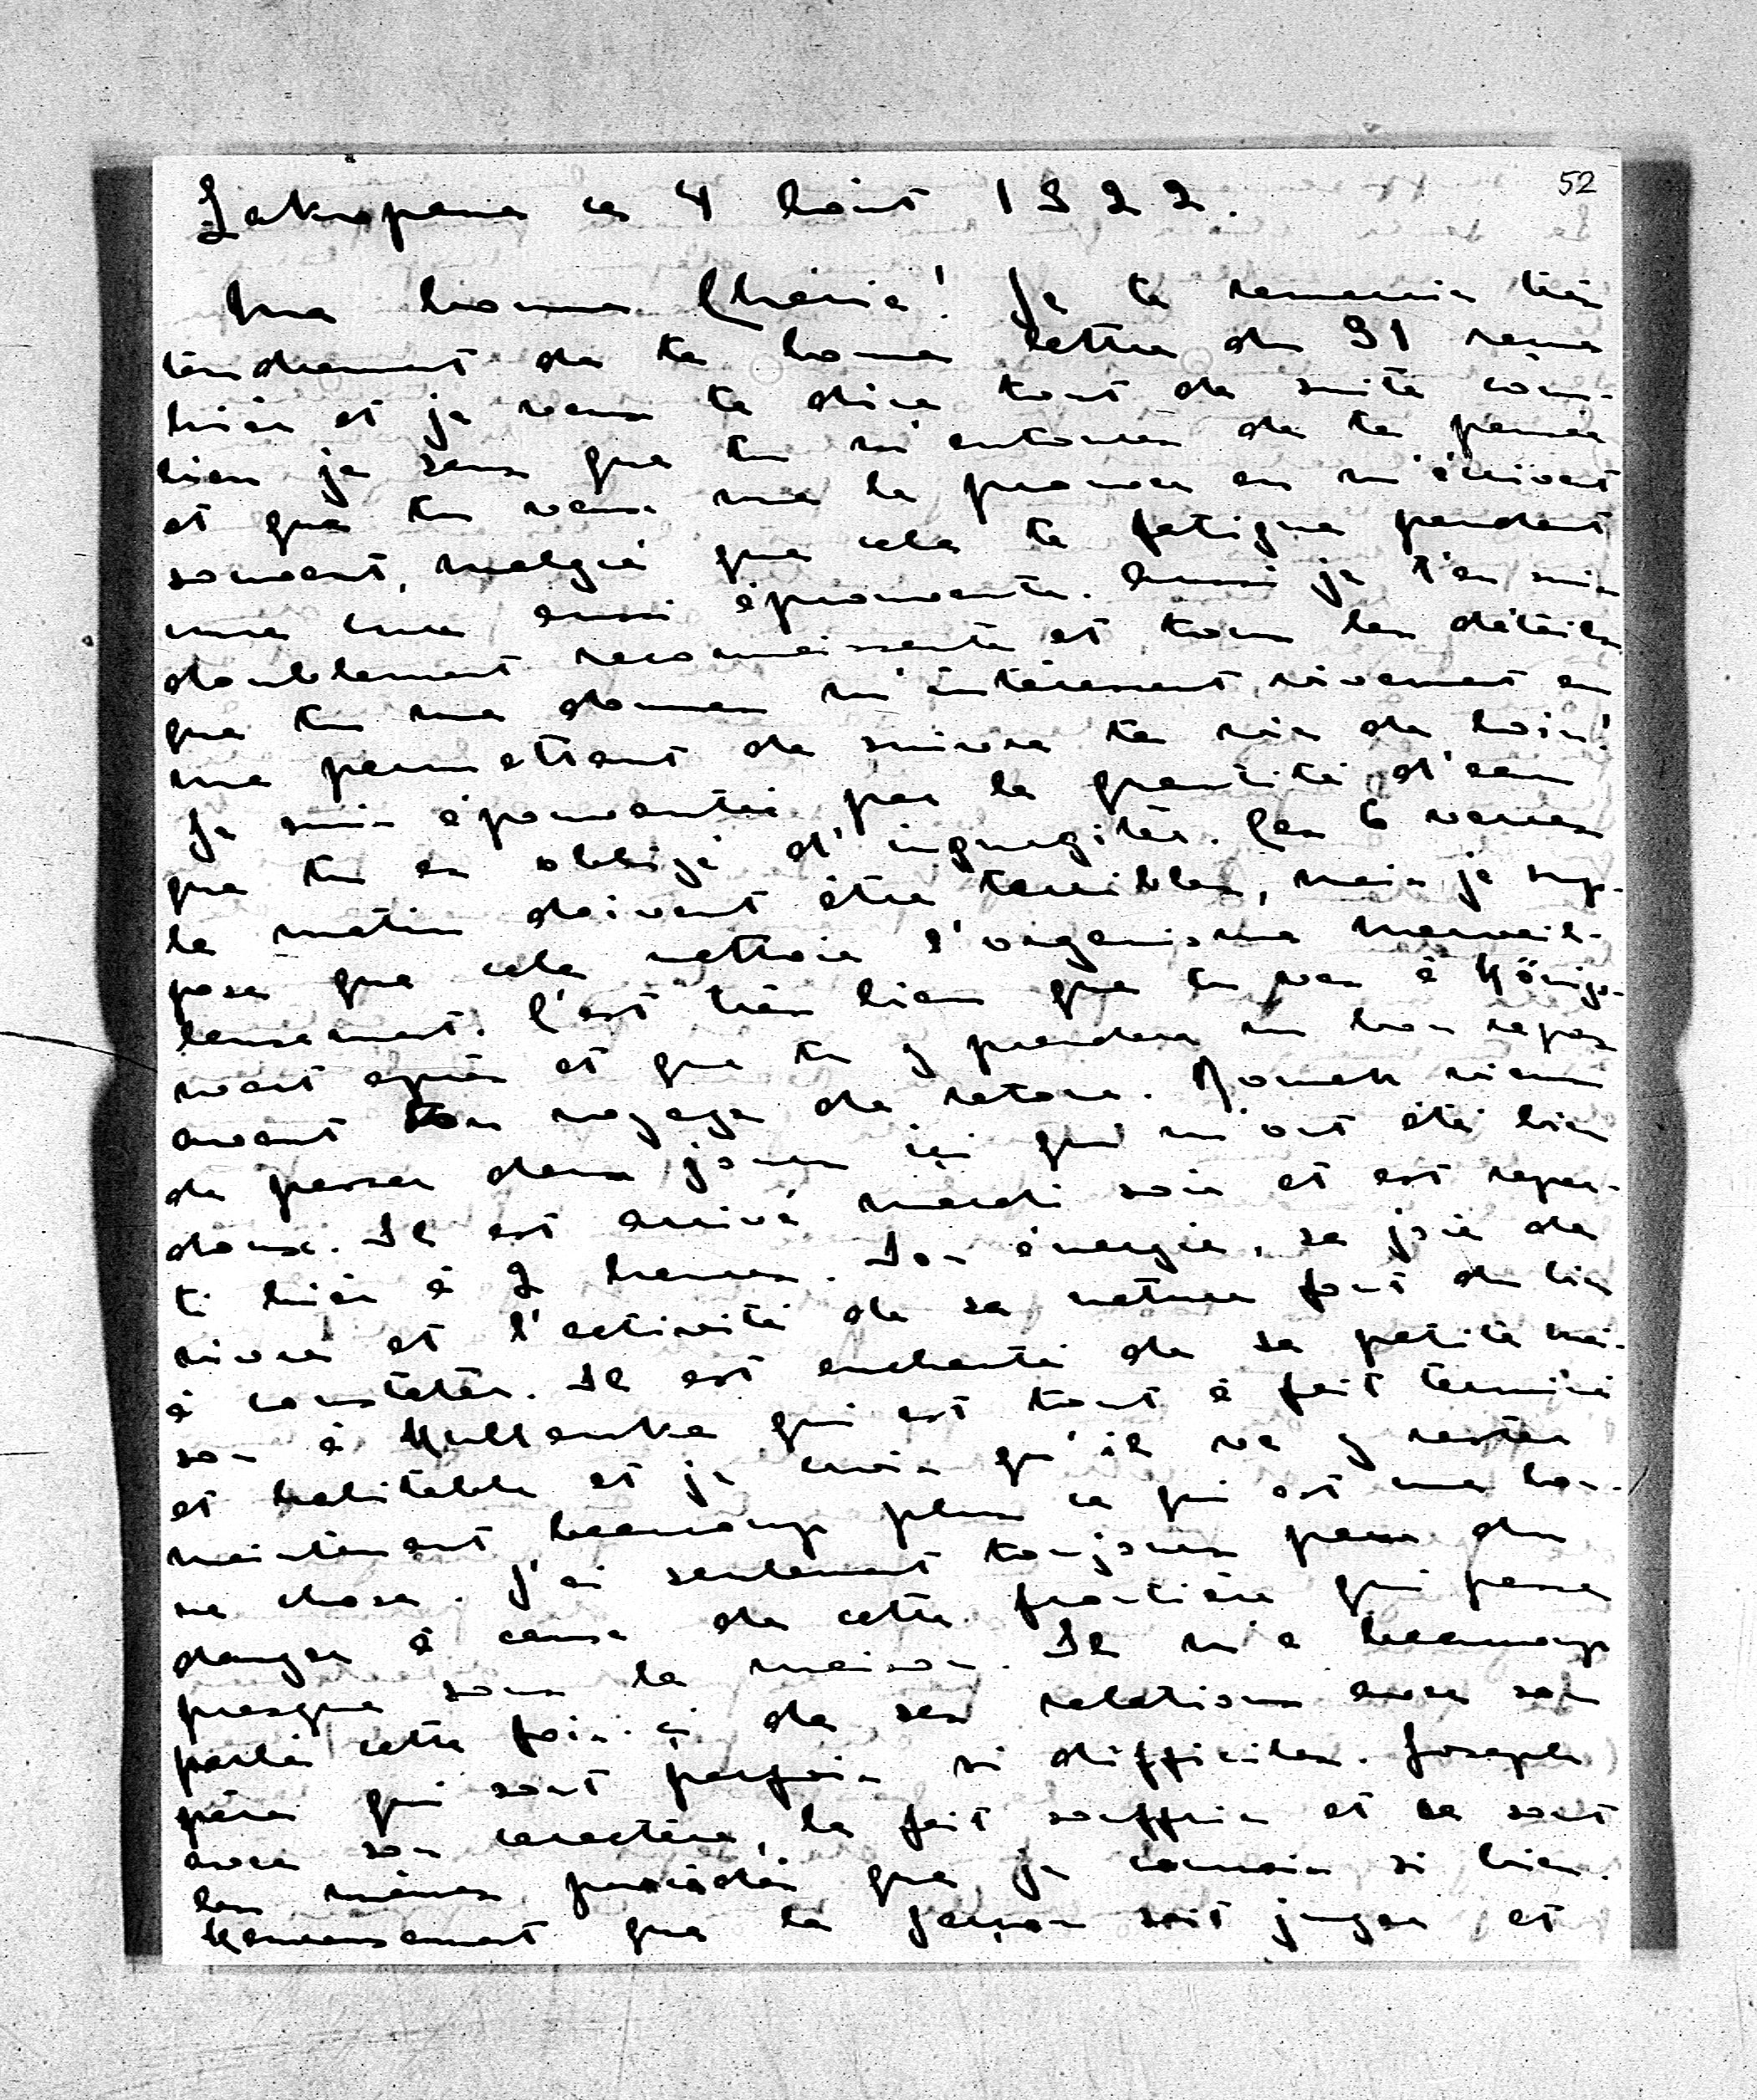 52
Zakopane ce 4 Août 1922.
Ma bonne Chérie! Je te remercie bien
tendrement de ta bonne lettre du 31 reçue
hier et je veux te dire tout de suite com-
bien je sens que tu m'entoures de ta pensée
et que tu veux me le prouver en m'écrivant
souvent, malgré que cela te fatigue pendant
une cure aussi éprouvante. Aussi je t'en suis
doublement reconnaissante et tous les détails
que tu me donnes m'intéressent vivement en
me permettant de suivre ta vie de loin!
Je suis épouvantée par la quantité d'eau
que tu es obligé d'ingurgiter. Ces 6 verres
le matin doivent être terribles, mais je sup-
pose que cela nettoie l'organisme merveil-
leusement. C'est très bien que tu vas à Königs-
wart après et que tu y prendras un bon repos
avant ton voyage de retour. Romek vient
de passer deux jours ici qui m'ont été bien
doux. Il est arrivé mardi soir et est repar-
ti hier à 2 heures. Son énergie, sa joie de
vivre et l'activité de sa nature font du bien
à constater. Il est enchanté de sa petite mai-
son à qui est tout à fait terminé
et habitable et je crois qu'il va y rester
maintenant beaucoup plus ce qui est une bon-
ne chose. J'ai seulement toujours peur du
danger à cause de cette frontière qui passe
presque sous la maison. Il m'a beaucoup
parlé cette fois-ci de ses relations avec son
père qui sont parfois si difficiles. Joseph
avec son caractère, le fait souffrir et ce sont
les mêmes procédés que je connais si bien.
Heureusement que le garçon soit juger et